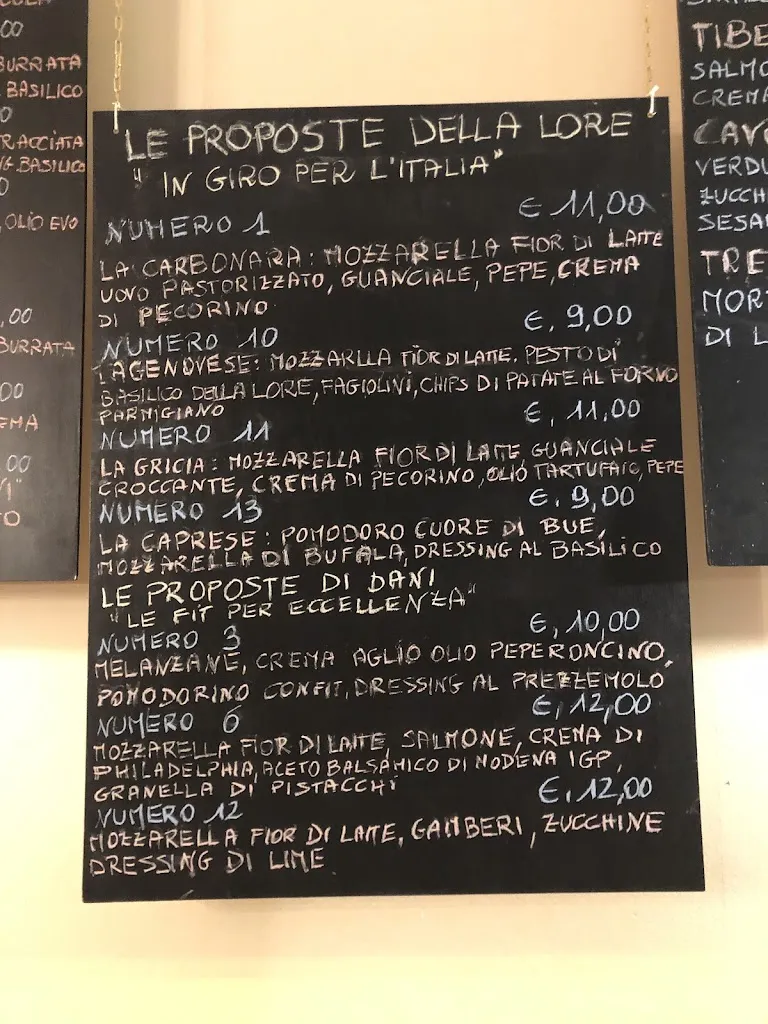 00
BURRATA
BASILICO
0
TRACCIATA
BASILICO
0
, OLIO EVO
,00
BURRATA
00
EMA
00
O
LE PROPOSTE DELLA LORE
"IN GIRO PER L'ITALIA"
NUMERO 1 € 11,00
LA CARBONARA: MOZZARELLA FIOR DI LATTE
UOVO PASTORIZZATO, GUANCIALE, PEPE, CREMA
DI PECORINO
NUMERO 10 €. 9,00
LAGENOVESE: MOZZARLLA FIOR DI LATTE. PESTO DI
BASILICO DELLA LORE, FAGIOLINI, CHIPS DI PATATE AL FORNO
PARMIGIANO
NUMERO 11 €, 11,00
LA GRICIA: MOZZARELLA FIOR DI LATTE, GUANCIALE
CROCCANTE, CREMA DI PECORINO, OLIO TARTUFATO, PEPE
NUMERO 13 €. 9,00
LA CAPRESE: POMODORO CUORE DI BUE,
MOZZARELLA DI BUFALA, DRESSING AL BASILICO
LE PROPOSTE DI DANI
"LE FIT PER ECCELLENZA"
NUMERO 3 €, 10,00
MELANZANE, CREMA AGLIO OLIO PEPERONCINO,
POMODORINO CONFIT, DRESSING AL PREZZEMOLO
NUMERO 6 €, 12,00
MOZZARELLA FIOR DI LATTE, SALMONE, CREMA DI
PHILADELPHIA, ACETO BALSAMICO DI MODENA IGP,
GRANELLA DI PISTACCHI
NUMERO 12 €, 12,00
MOZZARELLA FIOR DI LATTE, GAMBERI, ZUCCHINE
DRESSING DI LIME
TIBE
SALMO
CREMA
CAV
VERDU
ZUCCH
SESA
TRE
MOR
DI L